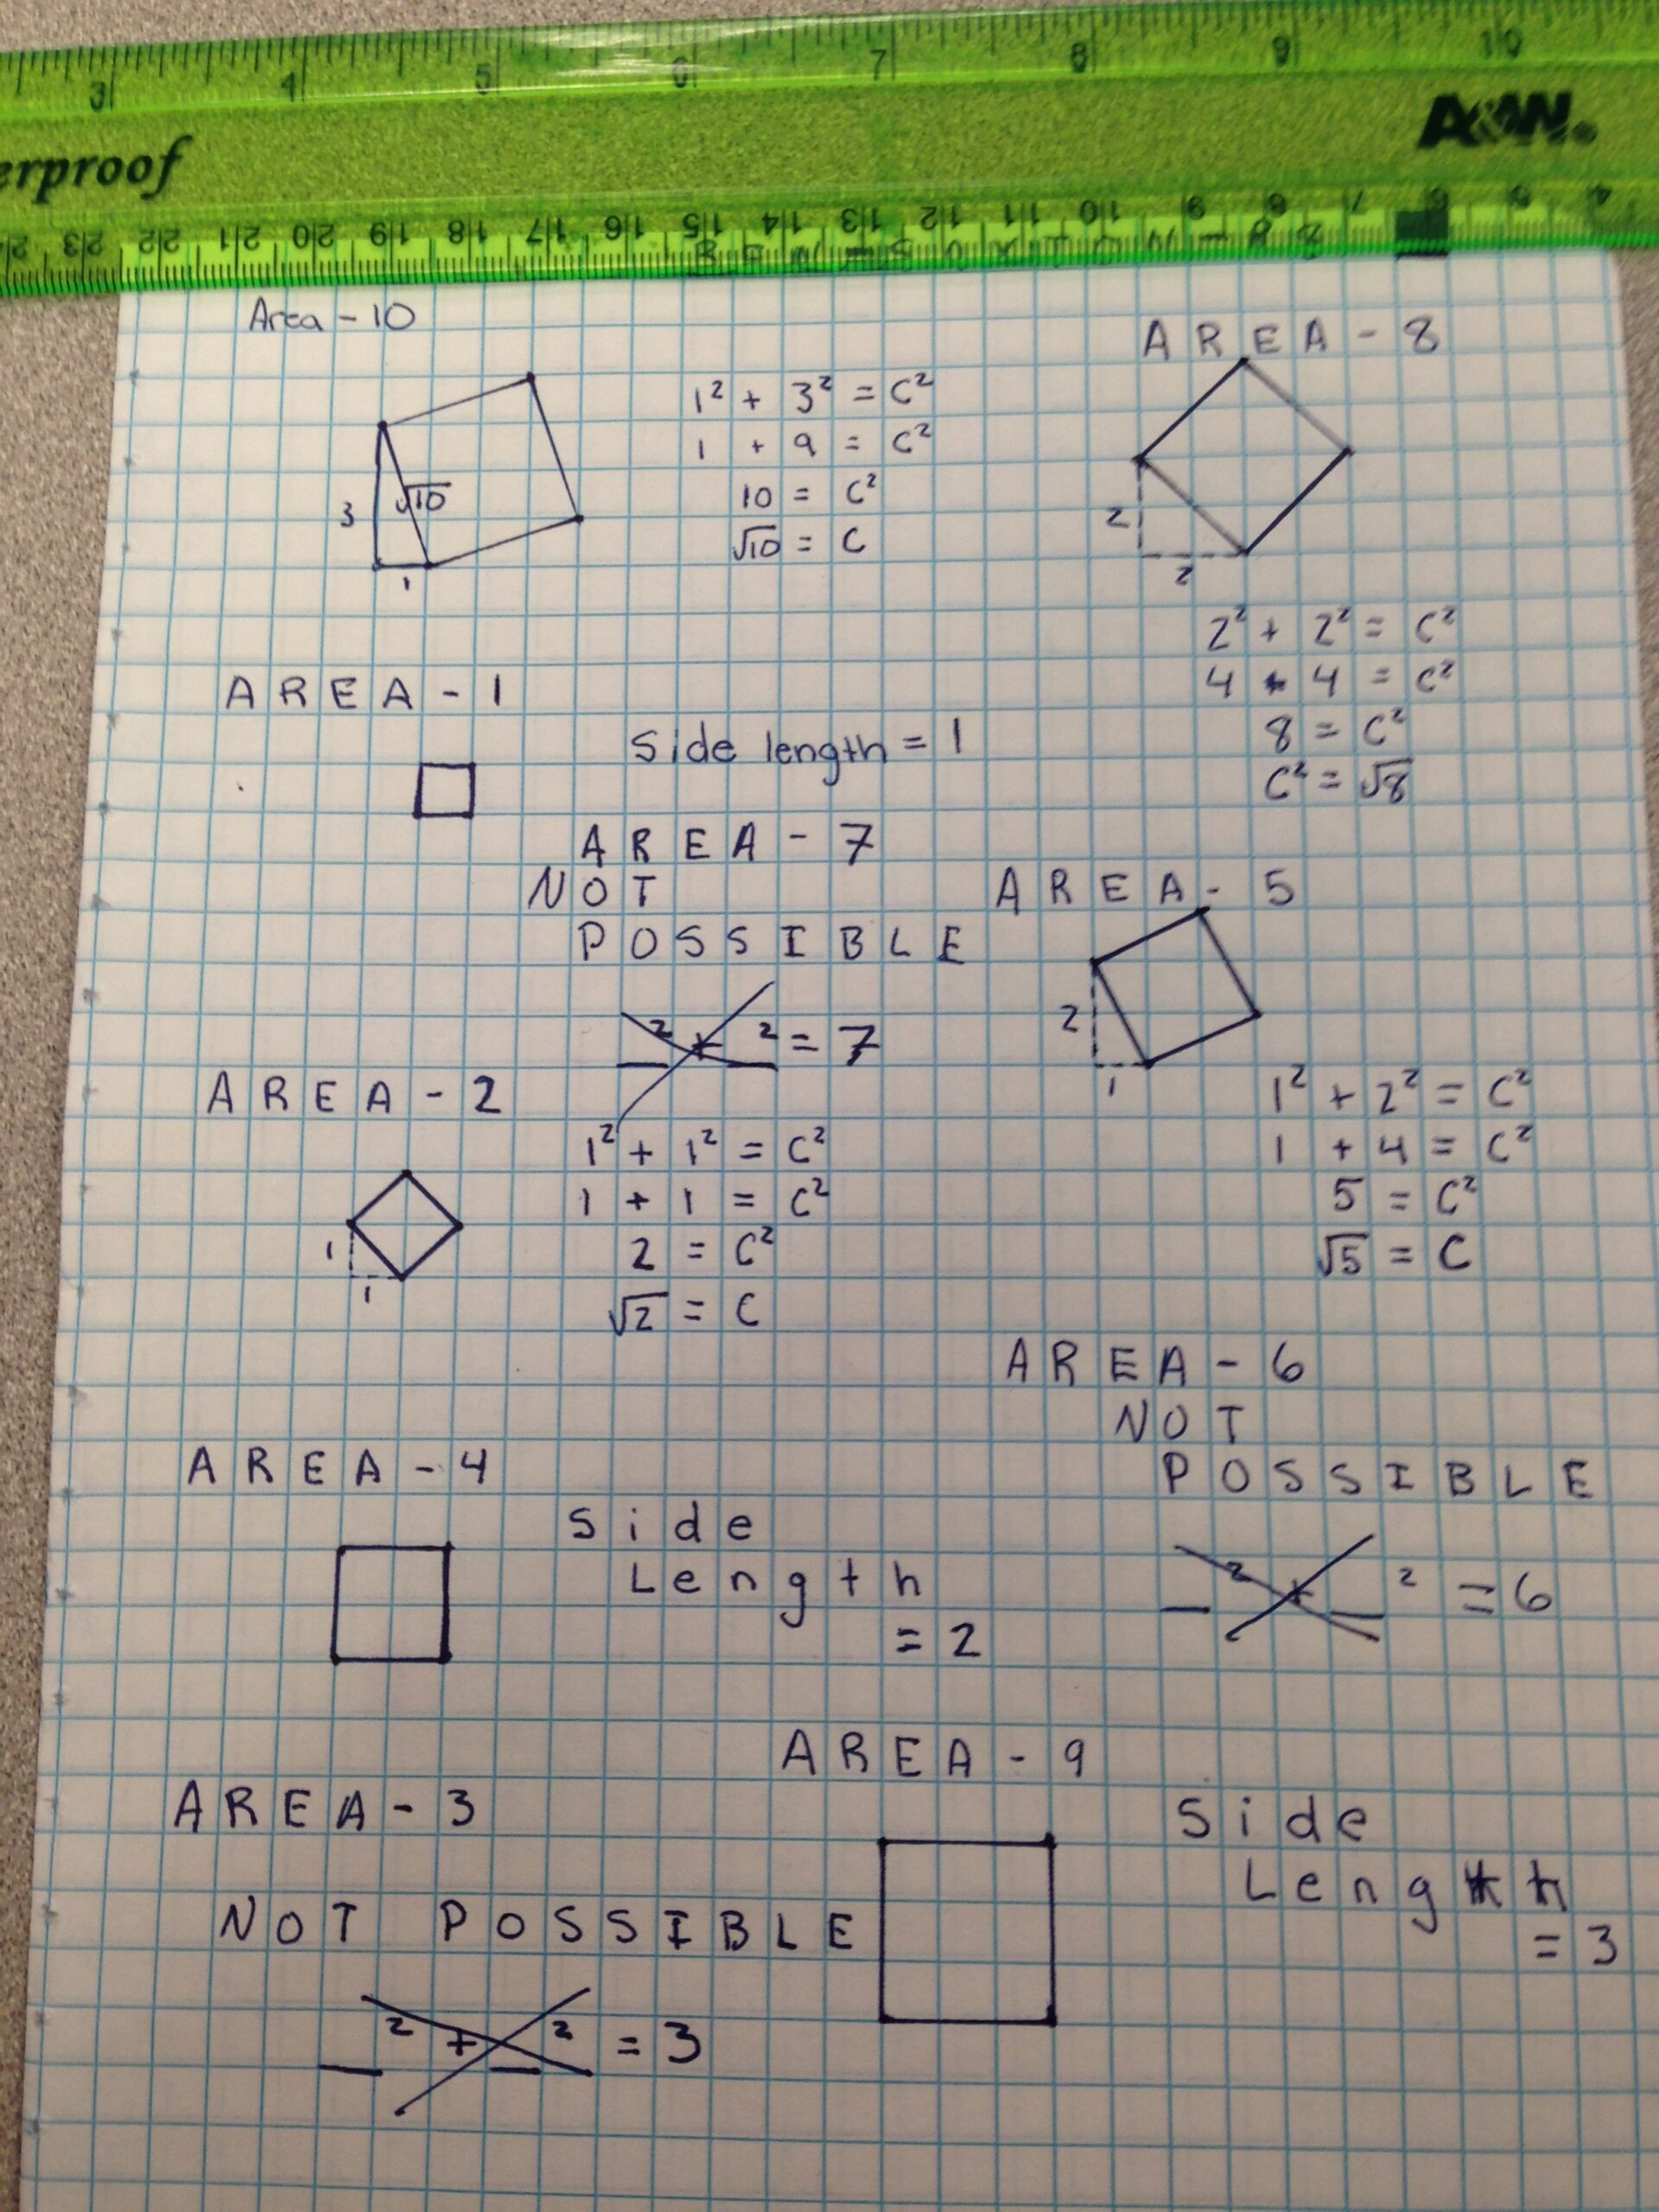 3 4 5 6 7 8 9 10
erproof
A&W.
23 22 21 20 19 18 17 16 15 14 13 12 11 10 9 8 7 6 5 4
Area - 10
3
√10
1
1² + 3² = C²
1 + 9 = C²
10 = C²
√10 = C
AREA - 8
2
2
2² + 2² = C²
4 + 4 = C²
8 = C²
C² = √8
AREA - 1
Side length = 1
AREA - 7
NOT
POSSIBLE
_² + _² = 7
AREA - 5
2
1
1² + 2² = C²
1 + 4 = C²
5 = C²
√5 = C
AREA - 2
1
1
1² + 1² = C²
1 + 1 = C²
2 = C²
√2 = C
AREA - 6
NOT
POSSIBLE
_² + _² = 6
AREA - 4
Side
Length
= 2
AREA - 9
Side
Length
= 3
AREA - 3
NOT POSSIBLE
_² + _² = 3